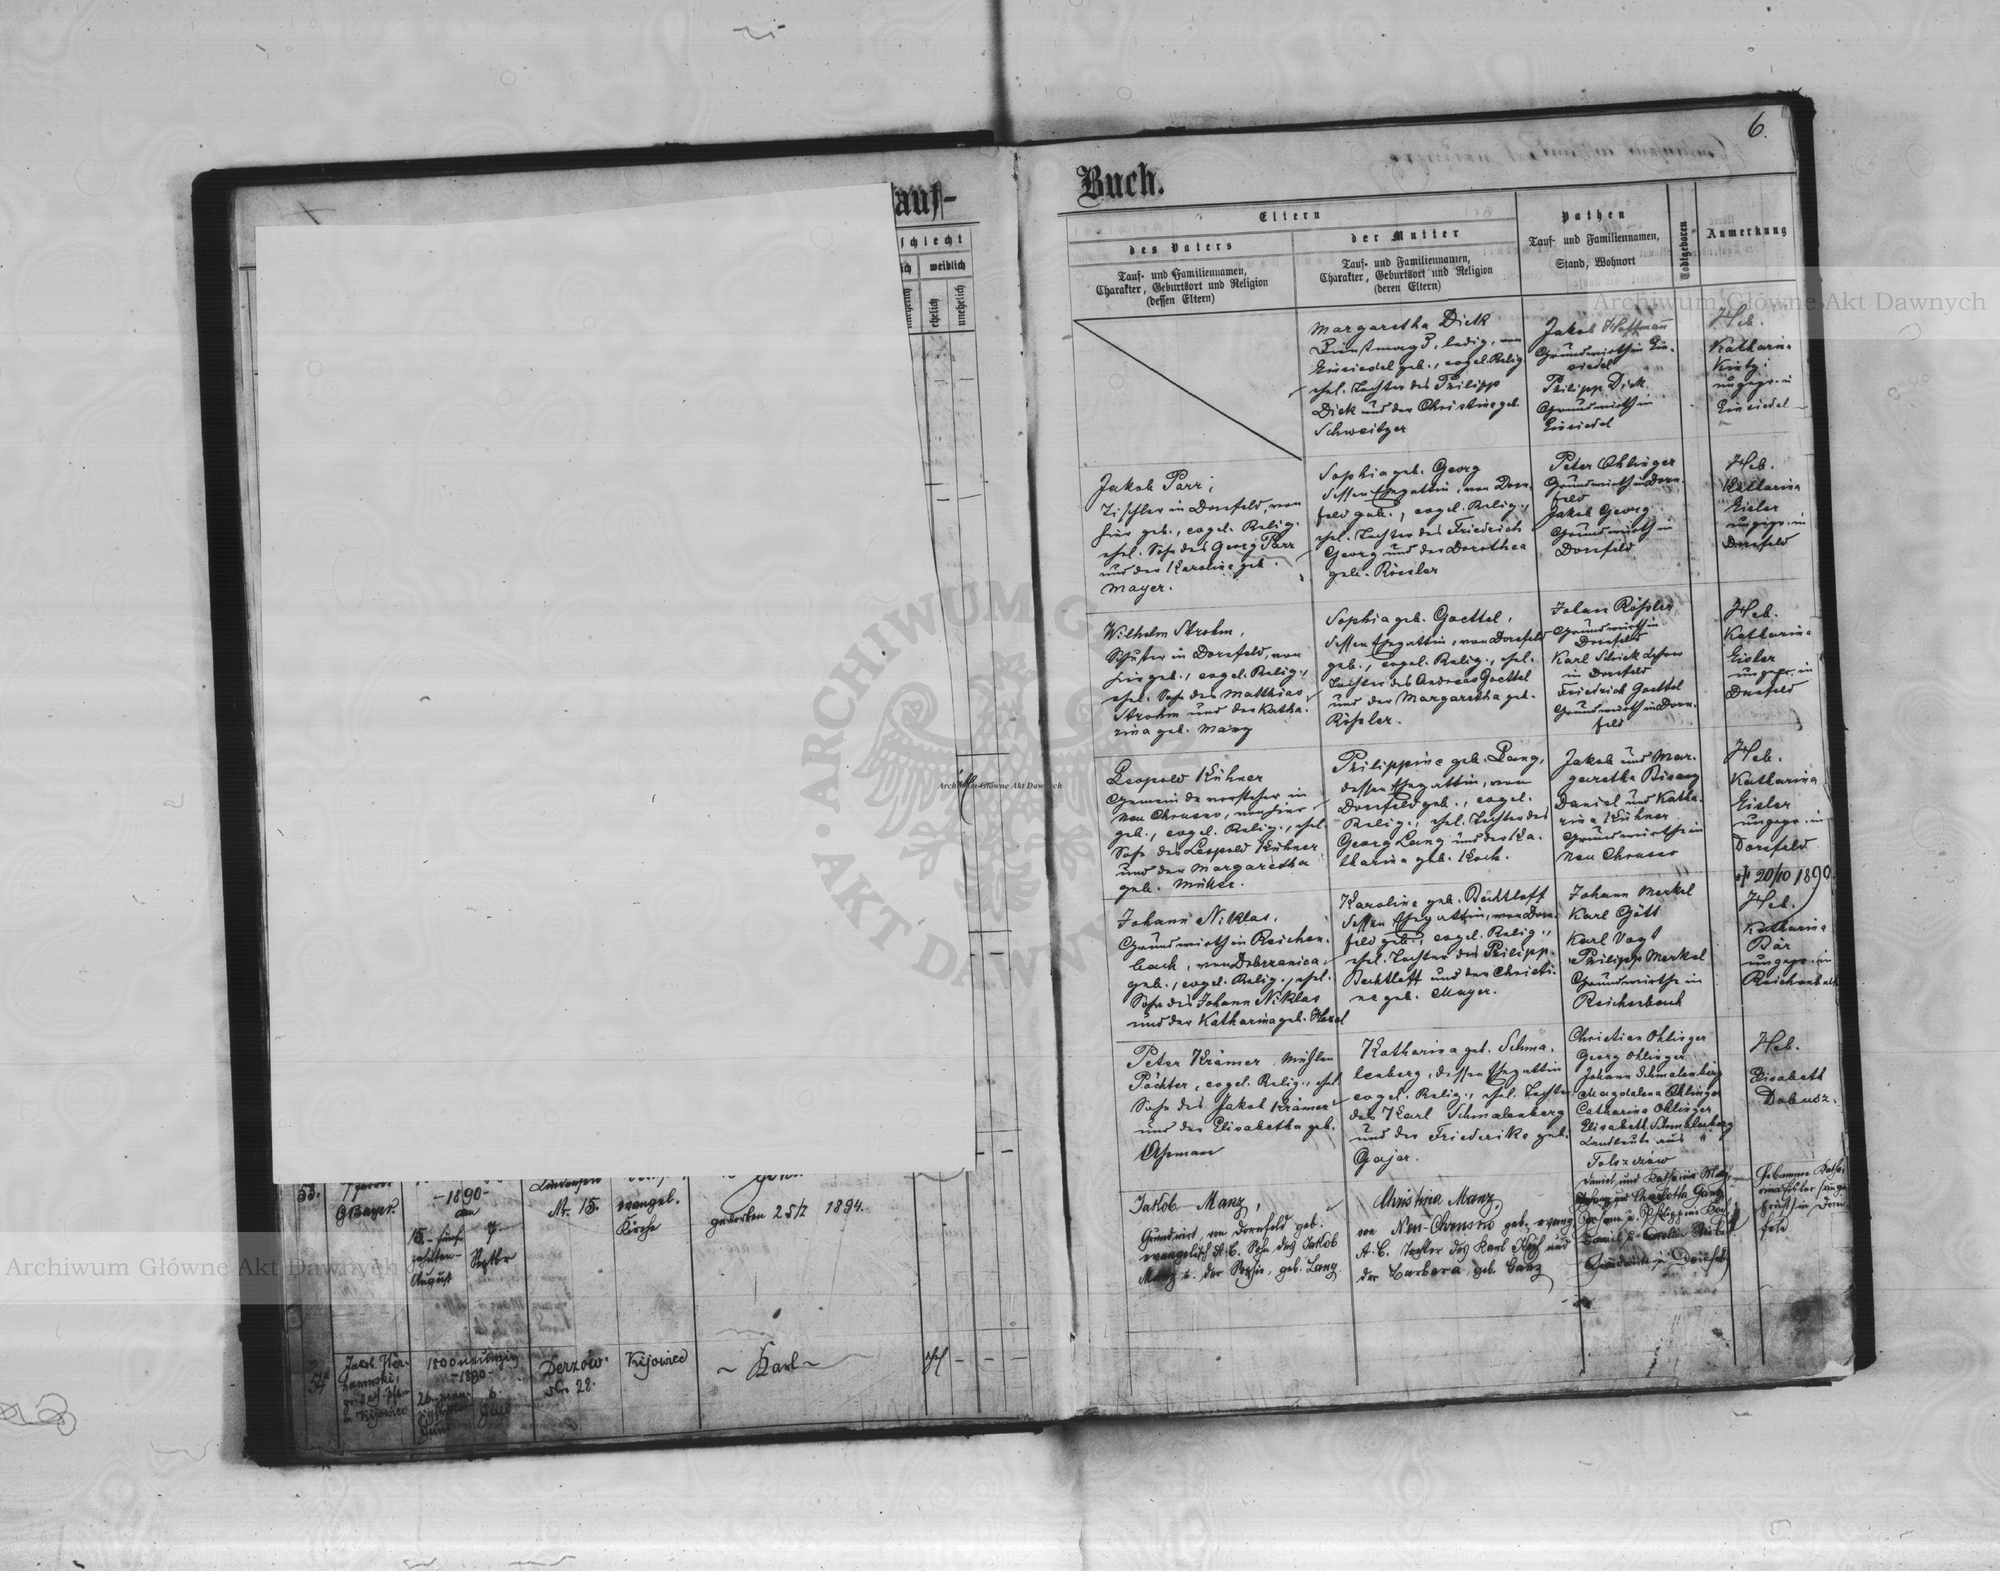 6.
auf-
Buch.
schlecht
weiblich
unehelich
ehelich
unehelich
Eltern
des Vaters
Tauf- und Familiennamen,
Charakter, Geburtsort und Religion
(dessen Eltern)
der Mutter
Tauf- und Familiennamen,
Charakter, Geburtsort und Religion
(deren Eltern)
Pathen
Tauf- und Familiennamen,
Stand, Wohnort
Todtgeboren
Anmerkung
Margaretha Dick
Dienstmagd, ledig, von
Einsiedel geb., evgel. Relig.
ehel. Tochter des Philipp
Dick und der Christine geb.
Schweitzer
Jakob Hoffmann
Grundwirth in Ein-
siedel
Philipp Dick
Grundwirth in
Einsiedel
Heb.
Katharina
ungepr. in
Einsiedel
Jakob Parr,
Tischler in Dornfeld, von
hier geb., evgel. Relig.
ehel. Sohn des Georg Parr
und der Karoline geb.
Mayer.
Sophia geb. Georg
dessen Ehegattin, von Dorn-
feld geb., evgel. Relig.,
ehel. Tochter des Friedrich
Georg und der Dorothea
geb. Rössler
Peter Ohlinger
Grundwirth in Dorn-
feld
Jakob Georg
Grundwirth in
Dornfeld
Heb.
Katharina
Eisler
ungepr. in
Dornfeld
Wilhelm Strohm,
Schuster in Dornfeld, von
hier geb., evgel. Relig.,
ehel. Sohn des Matthias
Strohm und der Katha-
rina geb. Manz
Sophia geb. Goettel,
dessen Ehegattin, von Dornfeld
geb., evgel. Relig., ehel.
Tochter des Andreas Goettel
und der Margaretha geb.
Rößler.
Johann Rößler
Grundwirth in
Dornfeld
Karl Schick Lehrer
in Dornfeld
Friedrich Goettel
Grundwirth in Dorn-
feld
Heb.
Katharina
Eisler
ungepr. in
Dornfeld
Leopold Kühner
Gemeindevorsteher in
Neu Chrusno, von hier
geb., evgel. Relig., ehel.
Sohn des Leopold Kühner
und der Margaretha
geb. Müller.
Philippine geb. Lang,
dessen Ehegattin, von
Dornfeld geb., evgel.
Relig., ehel. Tochter des
Georg Lang und der Ka-
tharina geb. Koch.
Jakob und Mar-
garetha Bisanz
Daniel und Katha-
rina Kühner
Grundwirthe in
Neu Chrusno
Heb.
Katharina
Eisler
ungepr. in
Dornfeld
† 20/10 1890.
Johann Niklas,
Grundwirth in Reichen-
bach, von Dobrzanica
geb., evgel. Relig., ehel.
Sohn des Johann Niklas
und der Katharina geb. Hexel
Karoline geb. Bechtloff
dessen Ehegattin, von Dorn-
feld geb., evgel. Relig.,
ehel. Tochter des Philipp
Bechtloff und der Christi-
ne geb. Mayer.
Johann Merkel
Karl Gött
Karl Vogt
Philipp Merkel
Grundwirthe in
Reichenbach
Heb.
Katharina
Bär
ungepr. in
Reichenbach
Peter Krämer Mühlen
Pächter, evgel. Relig., ehel.
Sohn des Jakob Krämer
und der Elisabetha geb.
Katharina geb. Schma-
lenberg, dessen Ehegattin
evgel. Relig., ehel. Tochter
des Karl Schmalenberg
und der Friederike geb.
Gajer.
Christian Ohlinger
Georg Ohlinger
Johann Schmalenberg
Magdalena Ohlinger
Catharina Ohlinger
Elisabeth Schmalenberg
Landleute aus
Tolszczów
Heb.
Elisabeth
Dobusz.
Jakob Manz,
Grundwirt, von Dornfeld geb.
evangelisch A. C. Sohn des Jakob
Manz u. der Sophie, geb. Lang
Christina Manz,
von Neu-Chrusno geb. evang.
A. C. Tochter des Karl Koch und
der Barbara, geb. Manz
Grundwirthe in Dornfeld
53.
Pfarrer
G. Bayer
-1890-
am
15.-fünf-
zehnten-
August
7
Septbr
Nr. 15.
evangel.
Kirche
gestorben 25/2 1894.
54
1890
26
6.
Juni
Derzów
Nro 28.
Kijowiec
~ Karl ~
ehel
- - -
Archiwum Główne Akt Dawnych
Archiwum Główne Akt Dawnych
Archiwum Główne Akt Dawnych